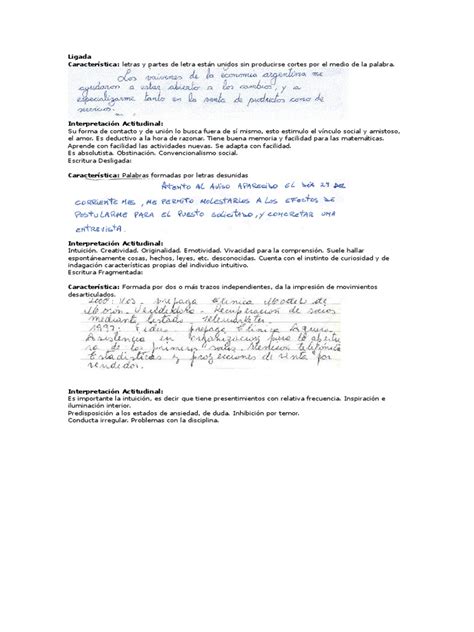 Ligada
Característica: letras y partes de letra están unidos sin producirse cortes por el medio de la palabra.
Los vaivenes de la economía argentina me
ayudaron a estar abierto a los cambios, y a
especializarme tanto en la venta de productos como de
servicios.
Interpretación Actitudinal:
Su forma de contacto y de unión lo busca fuera de sí mismo, esto estimulo el vínculo social y amistoso,
el amor. Es deductivo a la hora de razonar. Tiene buena memoria y facilidad para las matemáticas.
Aprende con facilidad las actividades nuevas. Se adapta con facilidad.
Es absolutista. Obstinación. Convencionalismo social.
Escritura Desligada:
Característica: Palabras formadas por letras desunidas
Atento al aviso aparecido el día 27 del
corriente mes, me permito molestarlos a los efectos de
postularme para el puesto solicitado, y concretar una
entrevista.
Interpretación Actitudinal:
Intuición. Creatividad. Originalidad. Emotividad. Vivacidad para la comprensión. Suele hallar
espontáneamente cosas, hechos, leyes, etc. desconocidas. Cuenta con el instinto de curiosidad y de
indagación características propias del individuo intuitivo.
Escritura Fragmentada:
Característica: Formada por dos o más trazos independientes, da la impresión de movimientos
desarticulados.
prepaga Clínica Modelo de
Morón. Vendedora. Recuperación de socios
mediante listado. Telemarketer.
prepaga Clínica
Asistencia en organización para la
de los primeros Atención telefónica
Estadísticas y proyecciones de venta por
vendedor.
Interpretación Actitudinal:
Es importante la intuición, es decir que tiene presentimientos con relativa frecuencia. Inspiración e
iluminación interior.
Predisposición a los estados de ansiedad, de duda. Inhibición por temor.
Conducta irregular. Problemas con la disciplina.